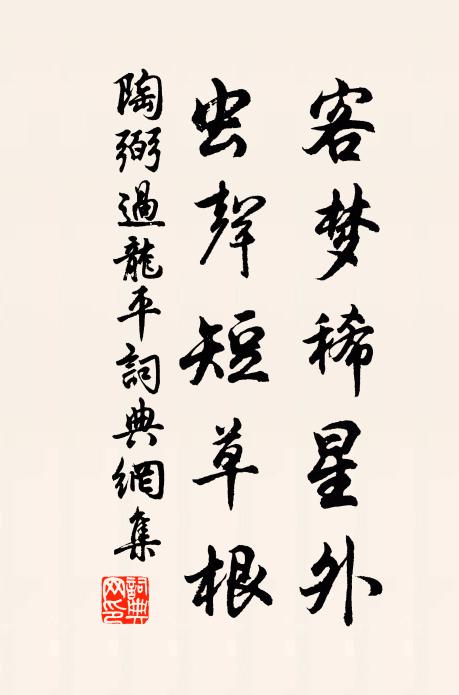 客梦稀星外
虫聲短草根
陶弼過龍平詞典網集
詞典网印